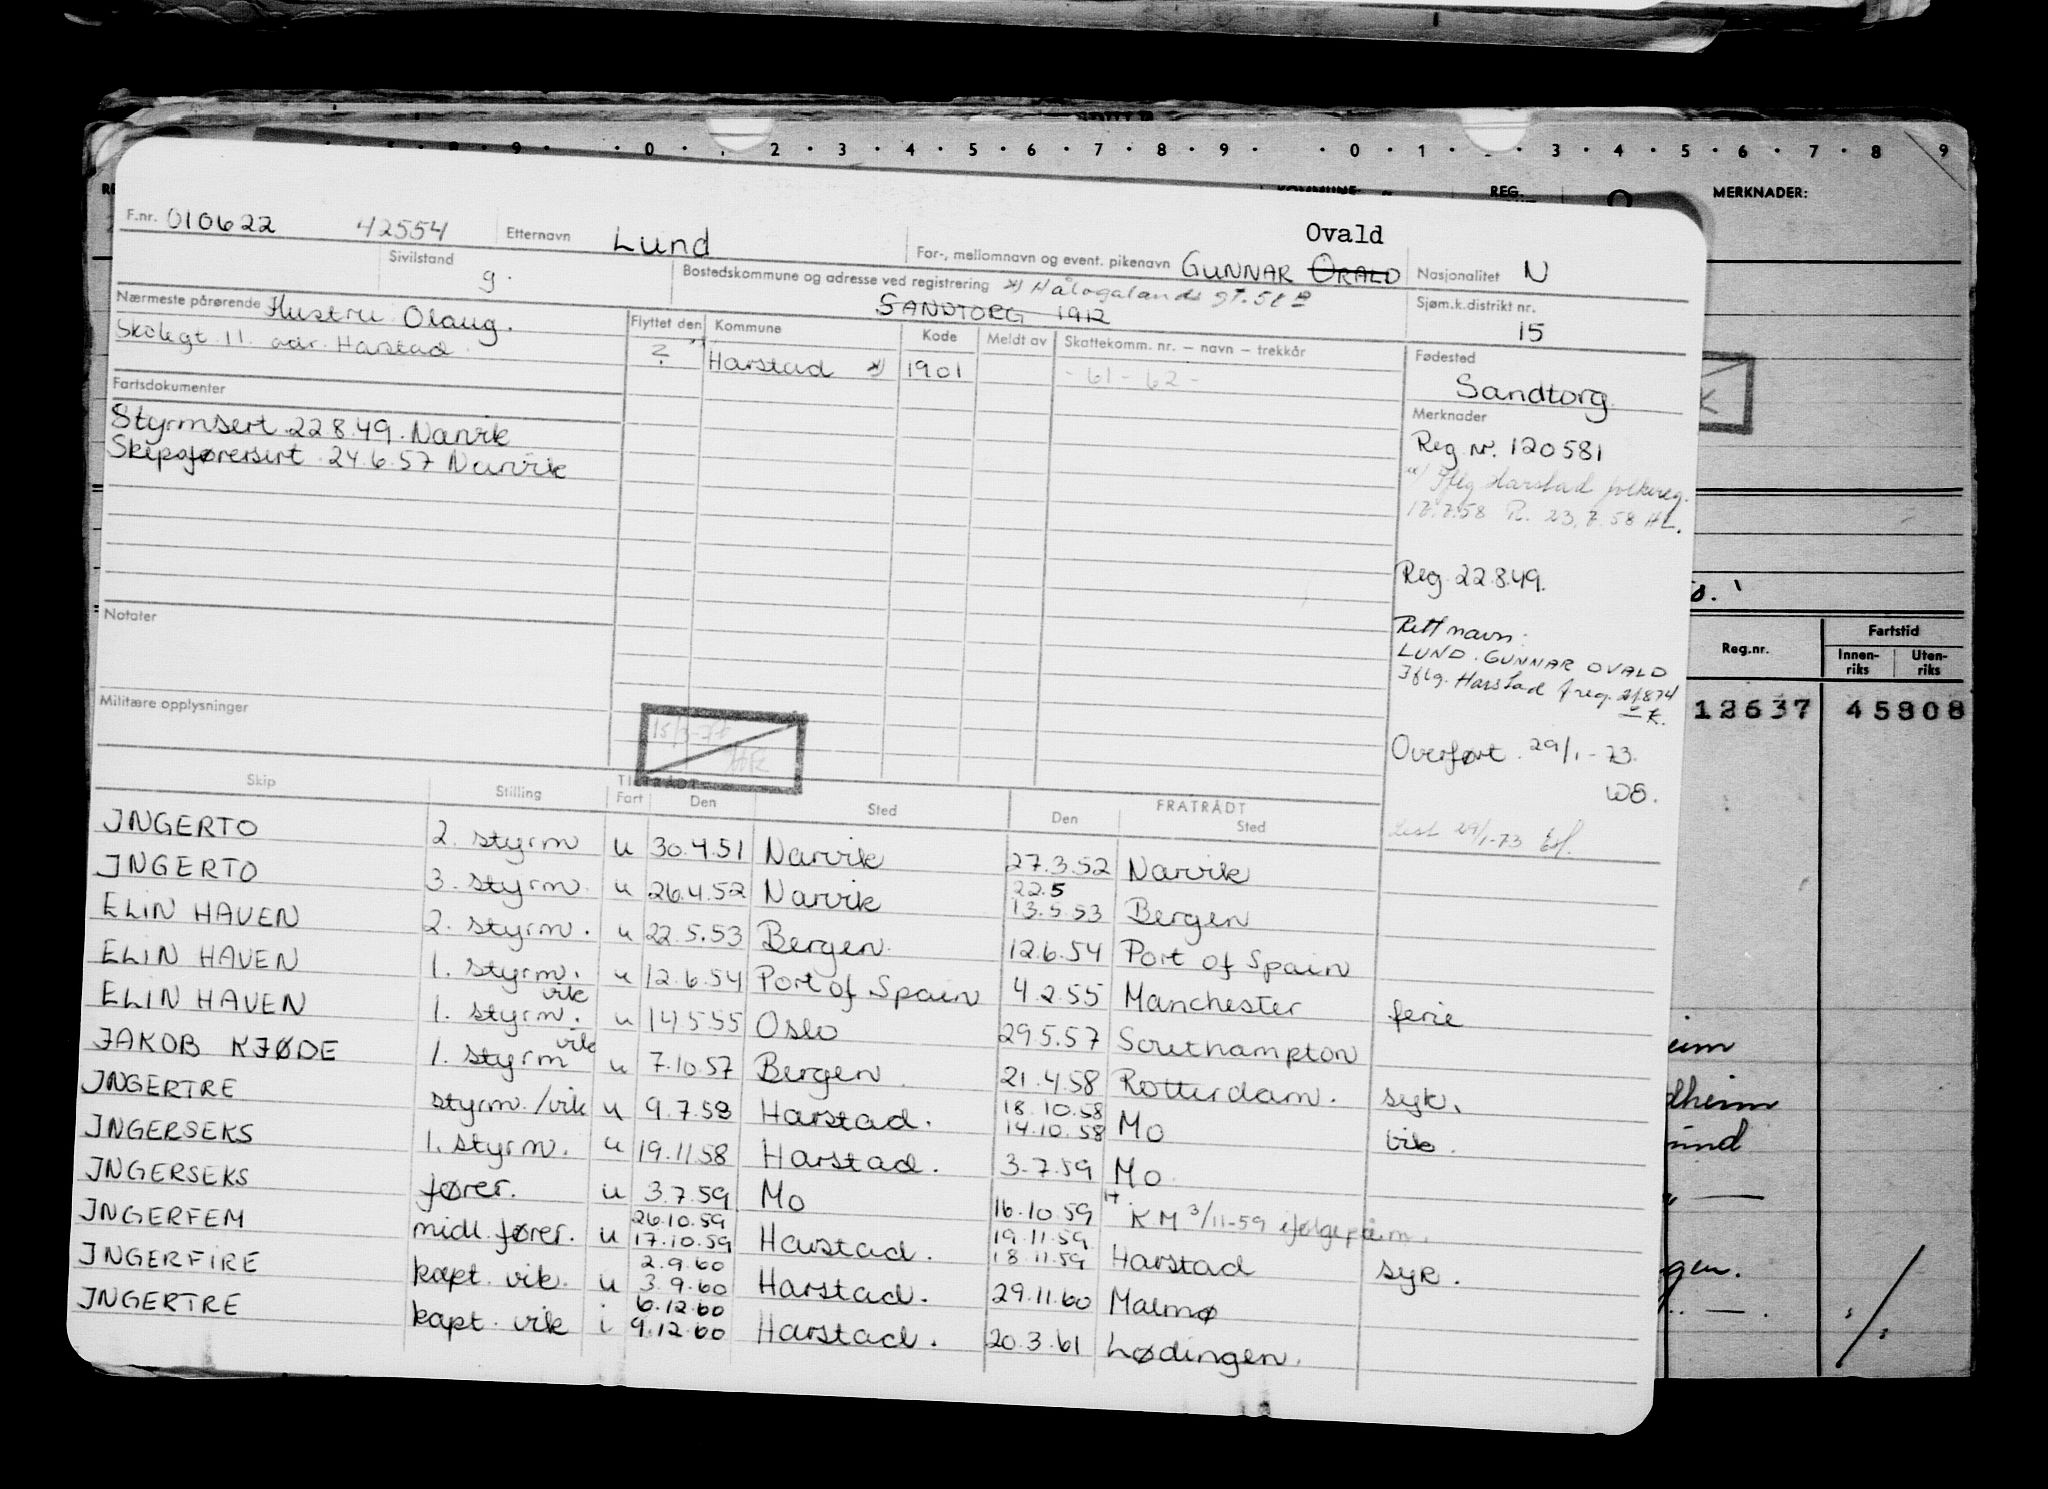 0 1 2 3 4 5 6 7 8 9 0 1 3 4 5 6 7 8 9
REG. MERKNADER:
F.nr. 010622 42554 Etternavn Lund For-, mellomnavn og event. pikenavn GUNNAR ORALD Ovald Nasjonalitet N
Sivilstand g. Bostedskommune og adresse ved registrering *) Hålogalands gt. SANDTORG 1912 Sjøm.k.distrikt nr. 15
Nærmeste pårørende Hustru Olaug.
Skolegt 11. adr. Harstad
Flyttet den Kommune Kode Meldt av Skattekomm. nr. – navn – trekkår
? Harstad *) 1901 - 61 - 62 -
Fødested
Sandtorg
Fartsdokumenter
Styrmsert 22.8.49. Narvik
Skipsførersert 24.6.57 Narvik
Merknader
Reg. nr. 120581
Iflg Harstad folkereg.
17.7.58 R. 23.7.58 HL.
Reg. 22.8.49.
Rett navn:
LUND. GUNNAR OVALD
Iflg. Harstad freg.
K.
Overført 29/1-73.
WS.
29/1-73
Notater
Militære opplysninger
Skip Stilling TILTRÅDT Fart Den Sted FRATRÅDT Den Sted
INGERTO 2. styrm u 30.4.51 Narvik 27.3.52 Narvik
INGERTO 3. styrm. u 26.4.52 Narvik 22.5 13.5.53 Bergen
ELIN HAVEN 2. styrm. u 22.5.53 Bergen. 12.6.54 Port of Spain
ELIN HAVEN 1. styrm. u 12.6.54 Port of Spain 4.2.55 Manchester ferie
ELIN HAVEN 1. styrm. vik u 14.5.55 Oslo 29.5.57 Southampton
JAKOB KJØDE 1. styrm vik u 7.10.57 Bergen 21.4.58 Rotterdam. syk.
INGERTRE styrm./vik u 9.7.58 Harstad. 18.10.58 14.10.58 Mo vik.
INGERSEKS 1. styrm. u 19.11.58 Harstad. 3.7.59 Mo
INGERSEKS fører. u 3.7.59 Mo 16.10.59 KM 3/11-59
INGERFEM midl. fører. u 26.10.59 17.10.59 Harstad. 19.11.59 18.11.59 Harstad syk.
INGERFIRE kapt. vik. u 2.9.60 3.9.60 Harstad. 29.11.60 Malmø
INGERTRE kapt. vik i 6.12.60 9.12.60 Harstad. 20.3.61 Lødingen.
Reg.nr. Fartstid
Innen-riks Uten-riks
12637 45808